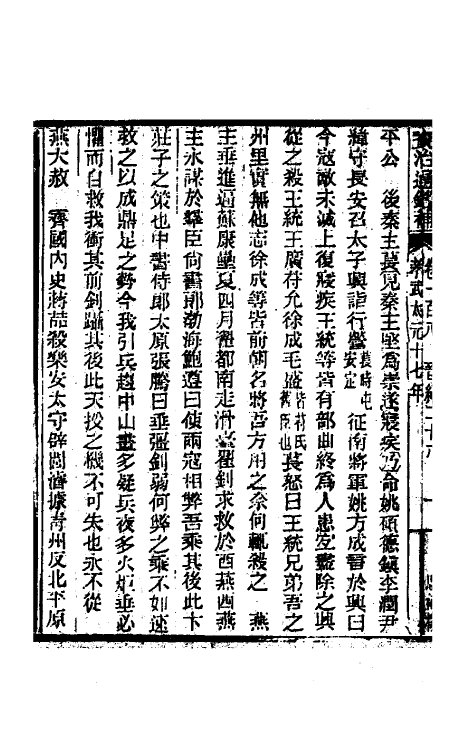 資治通鑑補 卷一百八 孝武太元十七年 晉紀三十八 一
平公　後秦主萇見秦主堅爲祟遂寢疾乃命姚碩德鎮李潤尹
緯守長安召太子興詣行營萇時屯安定　征南將軍姚方成言於興曰
今寇敵未滅上復寢疾王統等皆有部曲終爲人患宜盡除之興
從之殺王統王廣苻允徐成毛盛皆苻氏舊臣也萇怒曰王統兄弟吾之
州里實無他志徐成等皆前朝名將吾方用之奈何輒殺之　燕
主垂進逼蘇康壘夏四月翟都南走滑臺翟釗求救於西燕西燕
主永謀於羣臣尙書郞渤海鮑遵曰使兩寇相弊吾乘其後此卞
莊子之策也中書侍郞太原張騰曰垂强釗弱何弊之乘不如速
救之以成鼎足之勢今我引兵趨中山晝多疑兵夜多火炬垂必
懼而自救我衝其前釗躡其後此天授之機不可失也永不從
燕大赦　齊國內史蔣喆殺樂安太守辟閭濬據靑州反北平原